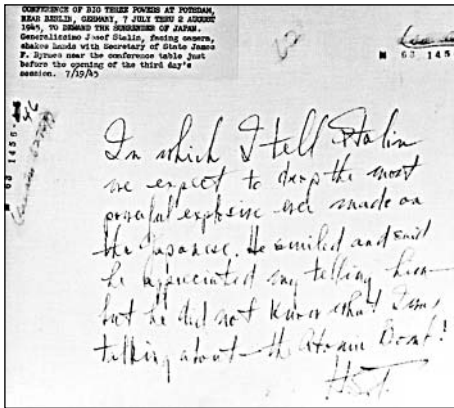 CONFERENCE OF BIG THREE POWERS AT POTSDAM,
NEAR BERLIN, GERMANY, 7 JULY THRU 2 AUGUST
1945, TO DEMAND THE SURRENDER OF JAPAN.
Generalissimo Josef Stalin, facing camera,
shakes hands with Secretary of State James
F. Byrnes near the conference table just
before the opening of the third day's
session. 7/19/45
63 1456
63 1456
In which I tell Stalin
we expect to drop the most
powerful explosive ever made on
the Japanese. He smiled and said
he appreciated my telling him—
but he did not know what I was
talking about—the Atomic Bomb!
HST